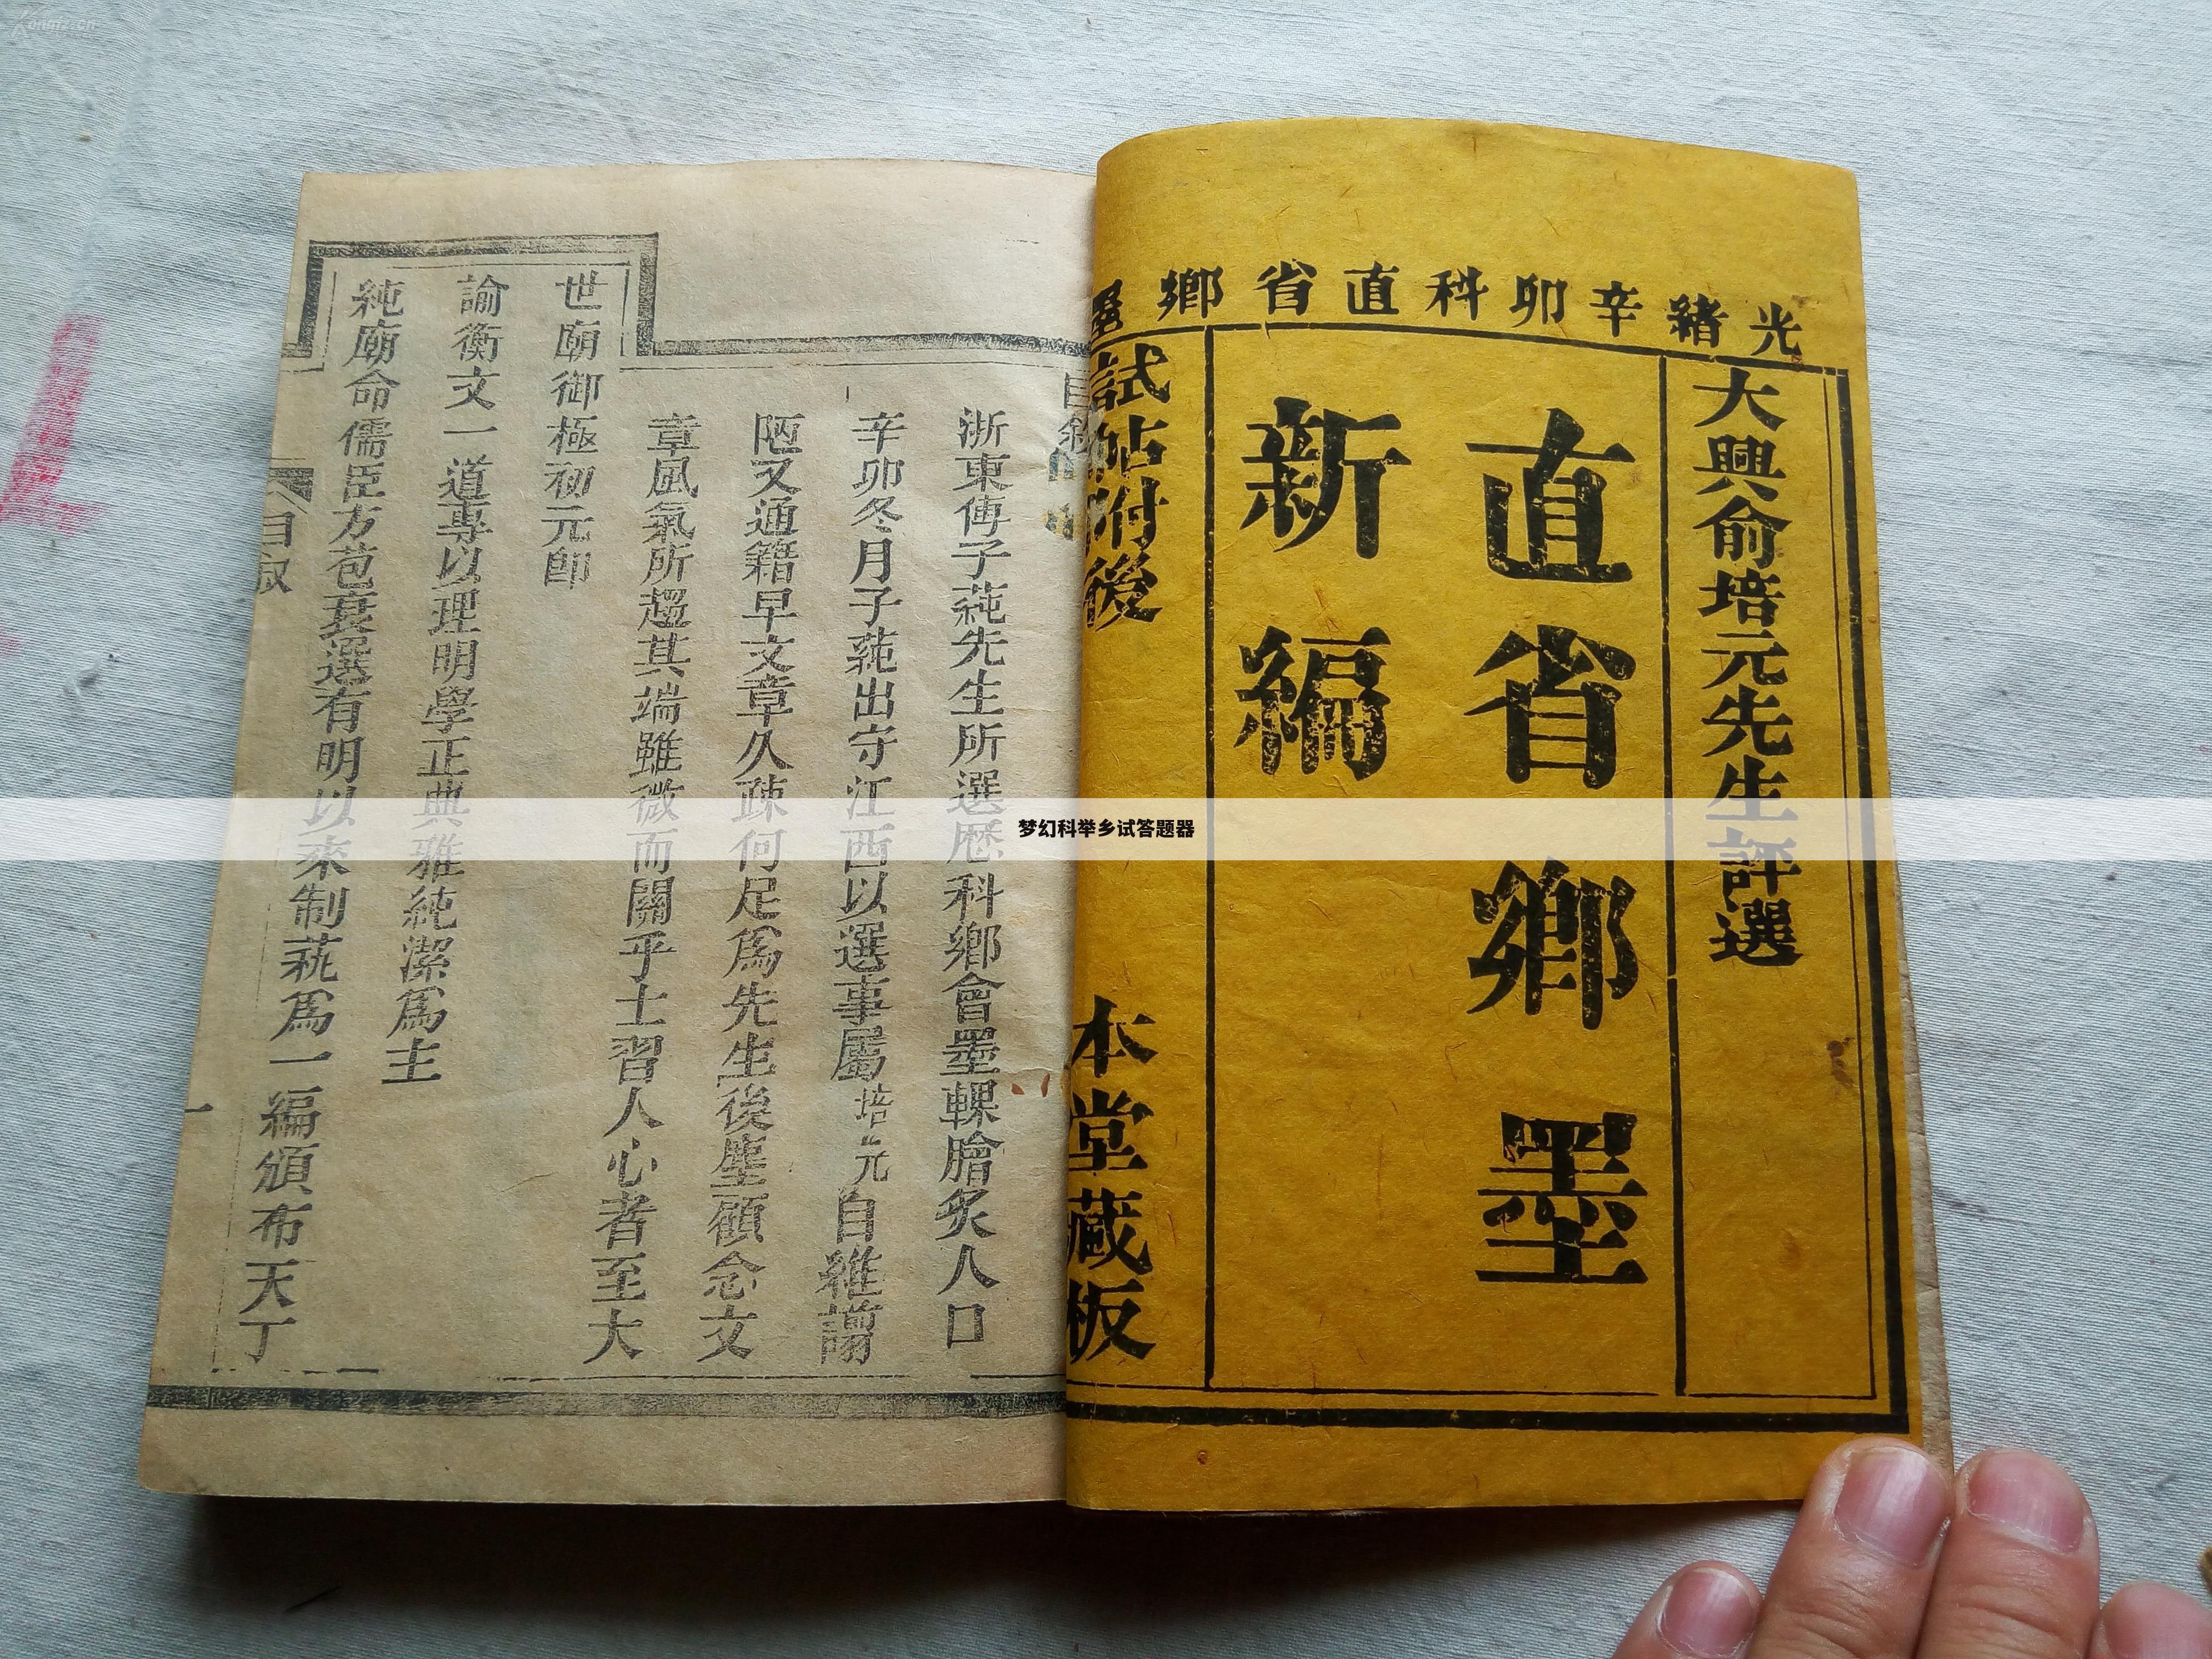 Kongfz.cn
光緒辛卯科直省鄉墨
大興俞培元先生評選
直省鄉墨
新編
試帖附後
本堂藏板
梦幻科举乡试答题器
浙東傅子蒓先生所選歷科鄉會墨輠膾炙人口
辛卯冬月子蒓出守江西以選事屬培元自維謭
陋又通籍早文章久疎何足爲先生後塵顧念文
章風氣所趨其端雖微而關乎士習人心者至大
世廟御極初元即
諭衡文一道專以理明學正典雅純潔爲主
純廟命儒臣方苞裒選有明以來制蓺爲一編頒布天下
目叙
一